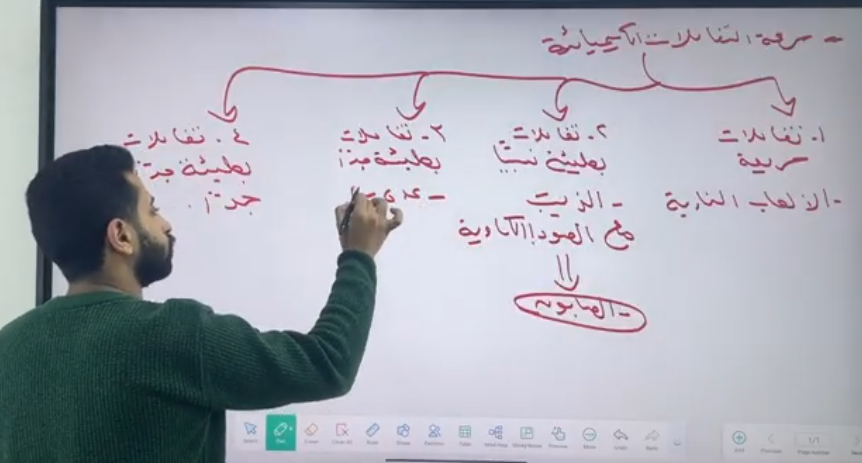 - سرعة التفاعلات الكيميائية
١. تفاعلات
سريعة
- الألعاب النارية
٢. تفاعلات
بطيئة نسبيًا
- الزيت
مع الصودا الكاوية
- الصابون
٣. تفاعلات
بطيئة جدًا
٤. تفاعلات
بطيئة جدًا
جدًا.
Select
Pen
Eraser
Clear All
Ruler
Shape
Table
Mind Map
Sticky Notes
More
Undo
Redo
Add
Previous
1/1
Page number